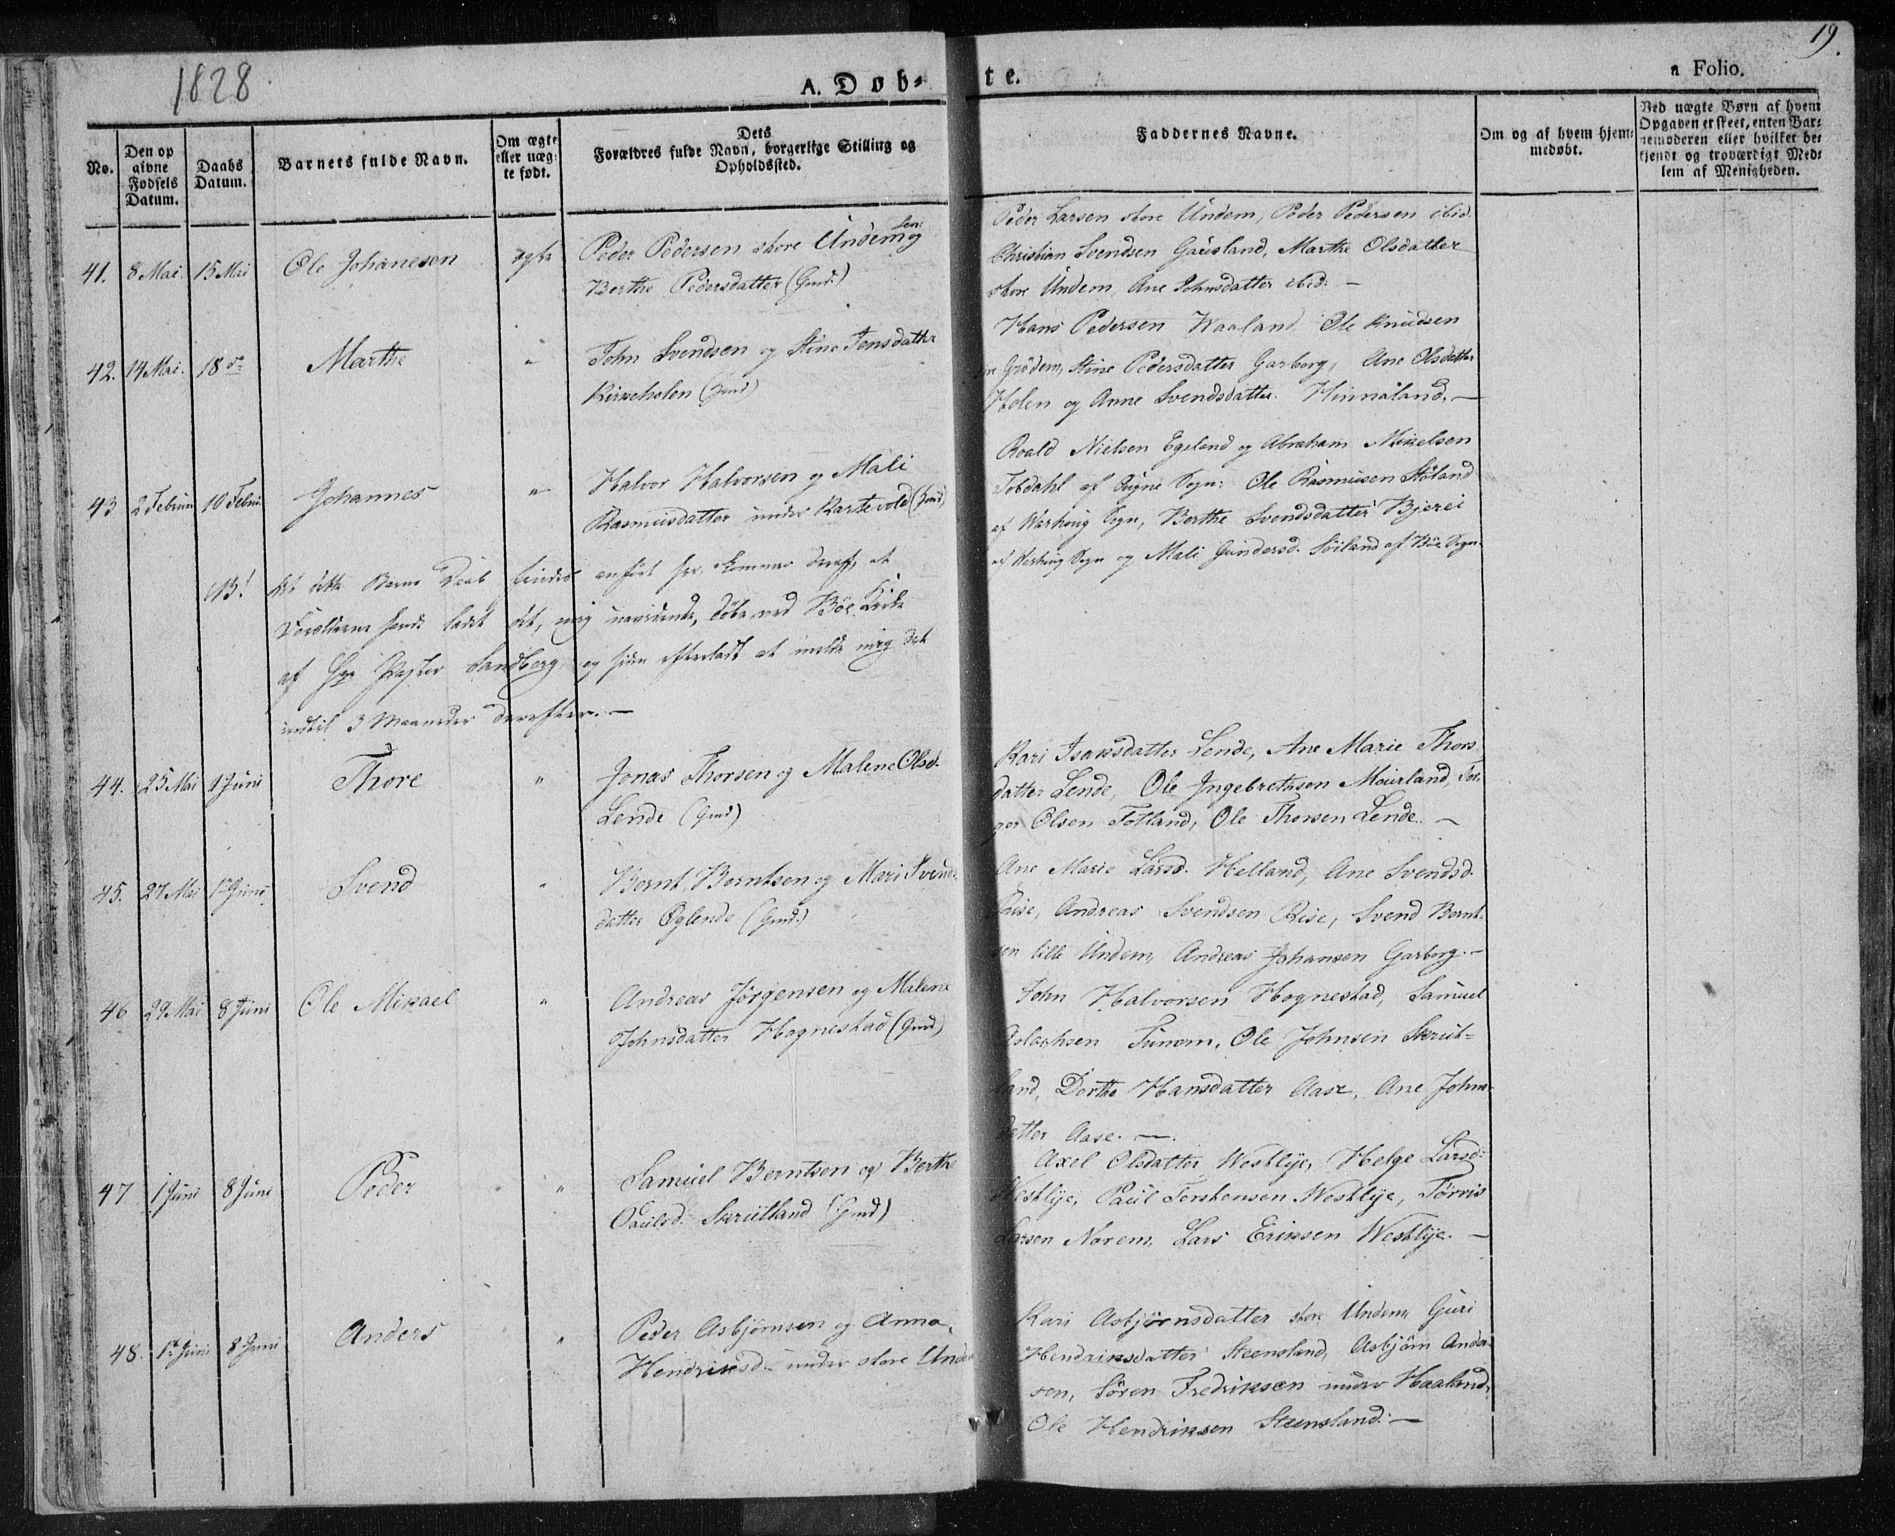 1828
19.
A. Døb-
te.
a Folio.
No.
Den op
givne
Fødsels
Datum.
Daabs
Datum.
Barnets fulde Navn.
Om ægte
eller uæg-
te født.
Dets
Forældres fulde Navn, borgerlige Stilling og
Opholdssted.
Faddernes Navne.
Om og af hvem hjem-
medøbt.
Ved uægte Børn af hvem
Opgaven er skeet, enten Bar-
nemoderen eller hvilket be-
kjendt og troværdigt Med-
lem af Menigheden.
41. 8 Mai 15 Mai Ole Johanesen ægte Peder Pedersen store Undem og
Berthe Pedersdatter (Gmd.)
Peder Larsen store Undem, Peder Pedersen ibid.
Christian Svendsen Gausland, Marthe Olsdatter
store Undem, Ane Johnsdatter ibid. —
42. 14 Mai. 18 do Marthe " John Svendsen og Stine Jensdatter
Kirkeholen (Gmd)
Hans Pedersen Waaland, Ole Knudsen
Grødem, Stine Pedersdatter Garborg, Ane Olsdatter
Holen og Anne Svendsdatter Hinnaland. —
43 2 Februar 10 Februar Johannes " Halvor Halvorsen og Mali
Rasmusdatter under Kartevold (Gmd)
Roald Nielsen Egeland og Abraham Mikelsen
Tobdahl af Sogn: Ole Rasmusen Støland
af Warhoug Sogn, Berthe Svendsdatter Bjerei
af Warhoug Sogn og Mali Gundersd. Søiland af Bøe Sogn.
NB! At dette Barns Daab findes anført her, kommer deraf, at
Forældrene havde ladet det, mig uvidende, døbe ved Bøe Kirke
af Hr Pastor Landberg, og siden efterladt at melde mig det
indtil 3 Maaneder derefter. —
44. 25 Mai 1 Juni Thore " Jonas Thorsen og Malene Olsd.
Lende (Gmd)
Kari Isaksdatter Lende, Ane Marie Thors-
datter Lende, Ole Ingebrethsen Mourland, Tor-
ger Olsen Totland, Ole Thorsen Lende. —
45. 27 Mai 1te Juni. Svend " Bernt Berntsen og Mari Svends-
datter Øglende (Gmd.)
Ane Marie Larsd. Helland, Ane Svendsd.
Riise, Andreas Svendsen Riise, Svend Bernt-
sen lille Undem, Andreas Johansen Garborg. —
46 29 Mai 8 Juni Ole Mikael " Andreas Jørgensen og Malene
Johnsdatter Hognestad (Gmd)
John Halvorsen Hognestad, Samuel
Aslachsen Tunem, Ole Johnsen Skrut-
land, Dorthe Hansdatter Aase, Ane Johns-
datter Aase. —
47 1 Juni 8 Juni Peder " Samuel Berntsen og Berthe
Paulsd. Skrutland (Gmd)
Axel Olsdatter Westlye, Helge Larsd:
Westlye, Paul Torstensen Westlye, Tørris
Larsen Norem, Lars Eriksen Westlye. —
48. 1te Juni 8 Juni Anders " Peder Asbjørnsen og Anna
Hendriksd. under store Undem
Kari Asbjørnsdatter store Undem, Guri
Hendriksdatter Steensland, Asbjørn Ander-
sen, Søren Fredriksen under Haaland,
Ole Hendriksen Steensland. —